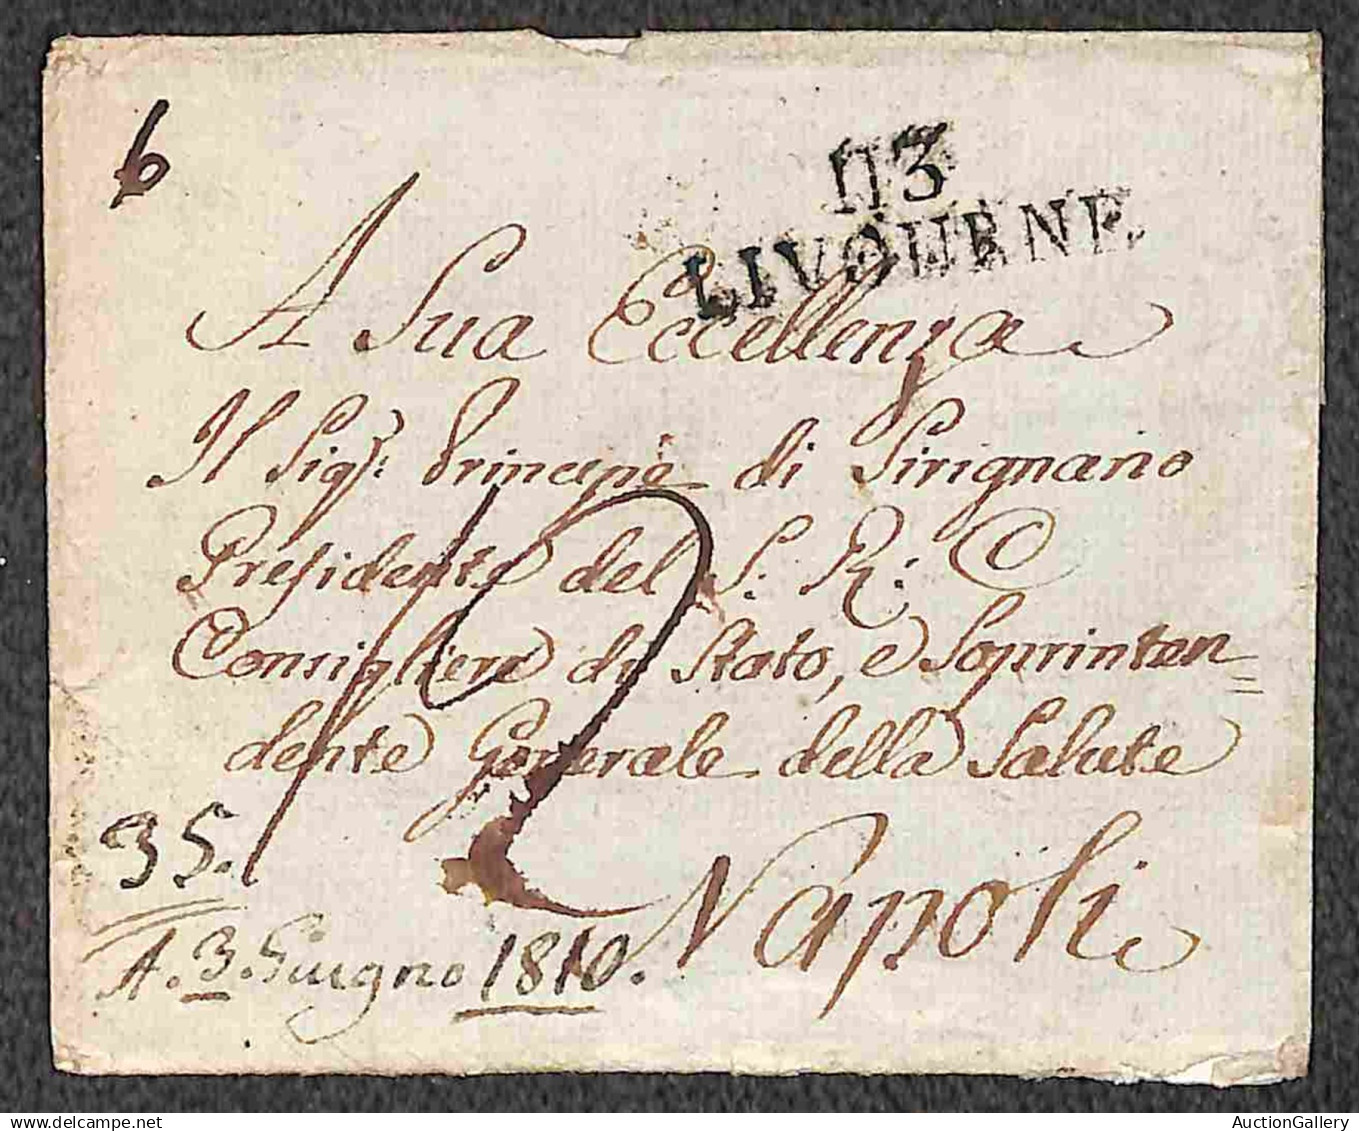 6
113
LIVOURNE
A Sua Eccellenza
Il Sigr. Principe di Sirignano
Presidente del S. R. C
Consigliere di Stato, e Soprinten=
dente Generale della Salute
Napoli
12
35.
A. 3. Giugno 1810.
AuctionGallery